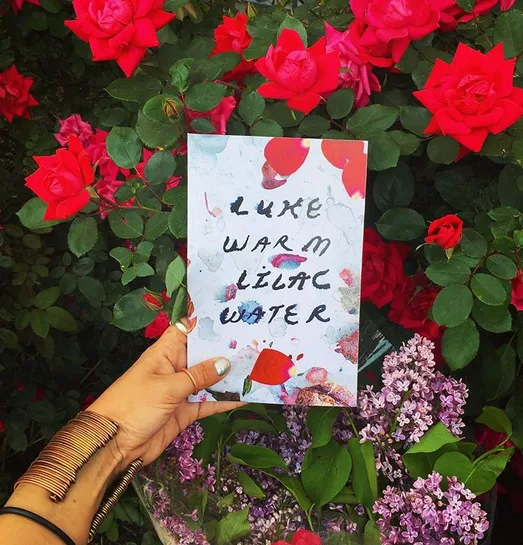 LUKE
WARM
LILAC
WATER